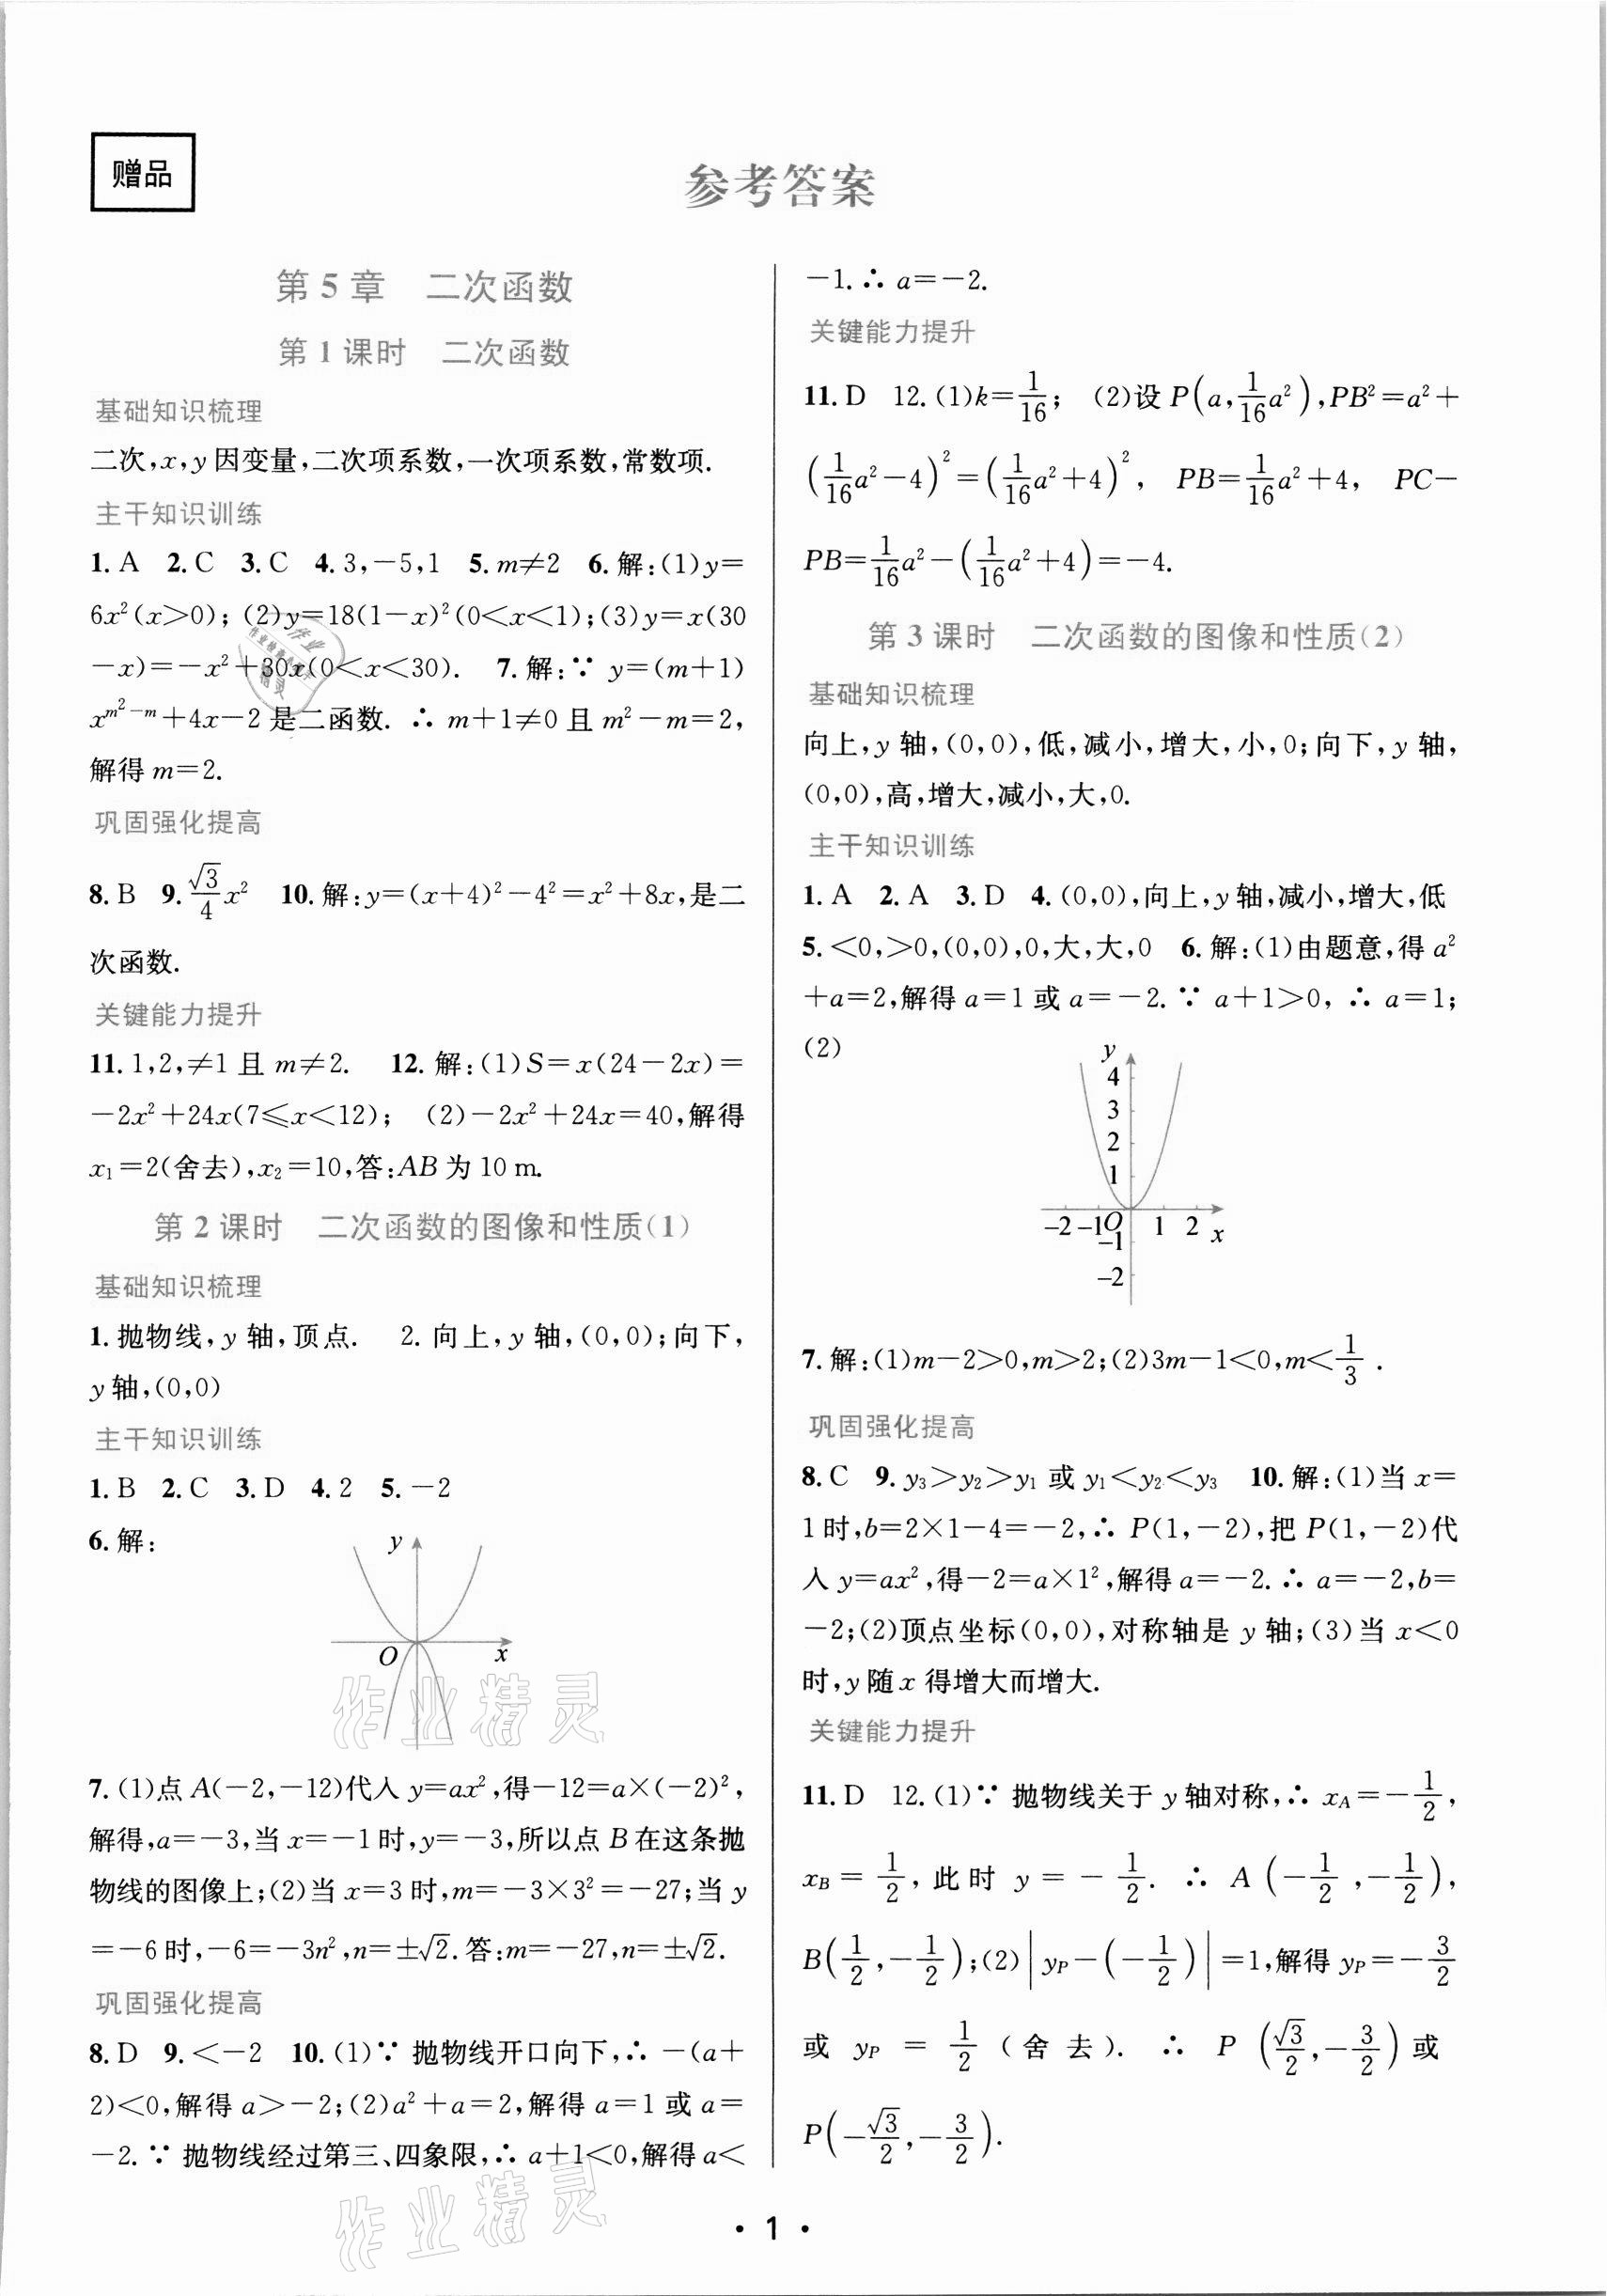 赠品
参考答案
第 5 章　二次函数
第 1 课时　二次函数
基础知识梳理
二次,x,y因变量,二次项系数,一次项系数,常数项.
主干知识训练
1. A　2. C　3. C　4. 3,－5,1　5. m≠2　6. 解:(1)y＝
6x²(x＞0);(2)y＝18(1－x)²(0＜x＜1);(3)y＝x(30
－x)＝－x²＋30x(0＜x＜30).　7. 解:∵ y＝(m＋1)
x^{m²－m}＋4x－2 是二函数. ∴ m＋1≠0 且 m²－m＝2,
解得 m＝2.
巩固强化提高
8. B　9. \frac{√3}{4}x²　10. 解:y＝(x＋4)²－4²＝x²＋8x,是二
次函数.
关键能力提升
11. 1,2,≠1 且 m≠2.　12. 解:(1)S＝x(24－2x)＝
－2x²＋24x(7⩽x＜12);　(2)－2x²＋24x＝40,解得
x₁＝2(舍去),x₂＝10,答:AB 为 10 m.
第 2 课时　二次函数的图像和性质(1)
基础知识梳理
1. 抛物线,y 轴,顶点.　2. 向上,y 轴,(0,0);向下,
y 轴,(0,0)
主干知识训练
1. B　2. C　3. D　4. 2　5. －2
6. 解:
y
O
x
7. (1)点 A(－2,－12)代入 y＝ax²,得－12＝a×(－2)²,
解得,a＝－3,当 x＝－1 时,y＝－3,所以点 B 在这条抛
物线的图像上;(2)当 x＝3 时,m＝－3×3²＝－27;当 y
＝－6 时,－6＝－3n²,n＝±√2. 答:m＝－27,n＝±√2.
巩固强化提高
8. D　9. ＜－2　10. (1)∵ 抛物线开口向下,∴ －(a＋
2)＜0,解得 a＞－2;(2)a²＋a＝2,解得 a＝1 或 a＝
－2. ∵ 抛物线经过第三、四象限,∴ a＋1＜0,解得 a＜
－1. ∴ a＝－2.
关键能力提升
11. D　12. (1)k＝\frac{1}{16};　(2)设 P(a,\frac{1}{16}a²),PB²＝a²＋
(\frac{1}{16}a²－4)²＝(\frac{1}{16}a²＋4)²,　PB＝\frac{1}{16}a²＋4,　PC－
PB＝\frac{1}{16}a²－(\frac{1}{16}a²＋4)＝－4.
第 3 课时　二次函数的图像和性质(2)
基础知识梳理
向上,y 轴,(0,0),低,减小,增大,小,0;向下,y 轴,
(0,0),高,增大,减小,大,0.
主干知识训练
1. A　2. A　3. D　4. (0,0),向上,y 轴,减小,增大,低
5. ＜0,＞0,(0,0),0,大,大,0　6. 解:(1)由题意,得 a²
＋a＝2,解得 a＝1 或 a＝－2. ∵ a＋1＞0, ∴ a＝1;
(2)
y
4
3
2
1
–2 –1 O 1 2 x
–1
–2
7. 解:(1)m－2＞0,m＞2;(2)3m－1＜0,m＜\frac{1}{3}.
巩固强化提高
8. C　9. y₃＞y₂＞y₁ 或 y₁＜y₂＜y₃　10. 解:(1)当 x＝
1 时,b＝2×1－4＝－2,∴ P(1,－2),把 P(1,－2)代
入 y＝ax²,得－2＝a×1²,解得 a＝－2. ∴ a＝－2,b＝
－2;(2)顶点坐标(0,0),对称轴是 y 轴;(3)当 x＜0
时,y 随 x 得增大而增大.
关键能力提升
11. D　12. (1)∵ 抛物线关于 y 轴对称,∴ x_A＝－\frac{1}{2},
x_B＝\frac{1}{2},此时 y＝－\frac{1}{2}. ∴ A(－\frac{1}{2},－\frac{1}{2}),
B(\frac{1}{2},－\frac{1}{2});(2)|y_P－(－\frac{1}{2})|＝1,解得 y_P＝－\frac{3}{2}
或 y_P＝\frac{1}{2}(舍去). ∴ P(\frac{√3}{2},－\frac{3}{2})或
P(－\frac{√3}{2},－\frac{3}{2}).
作业精灵
作业精灵
· 1 ·